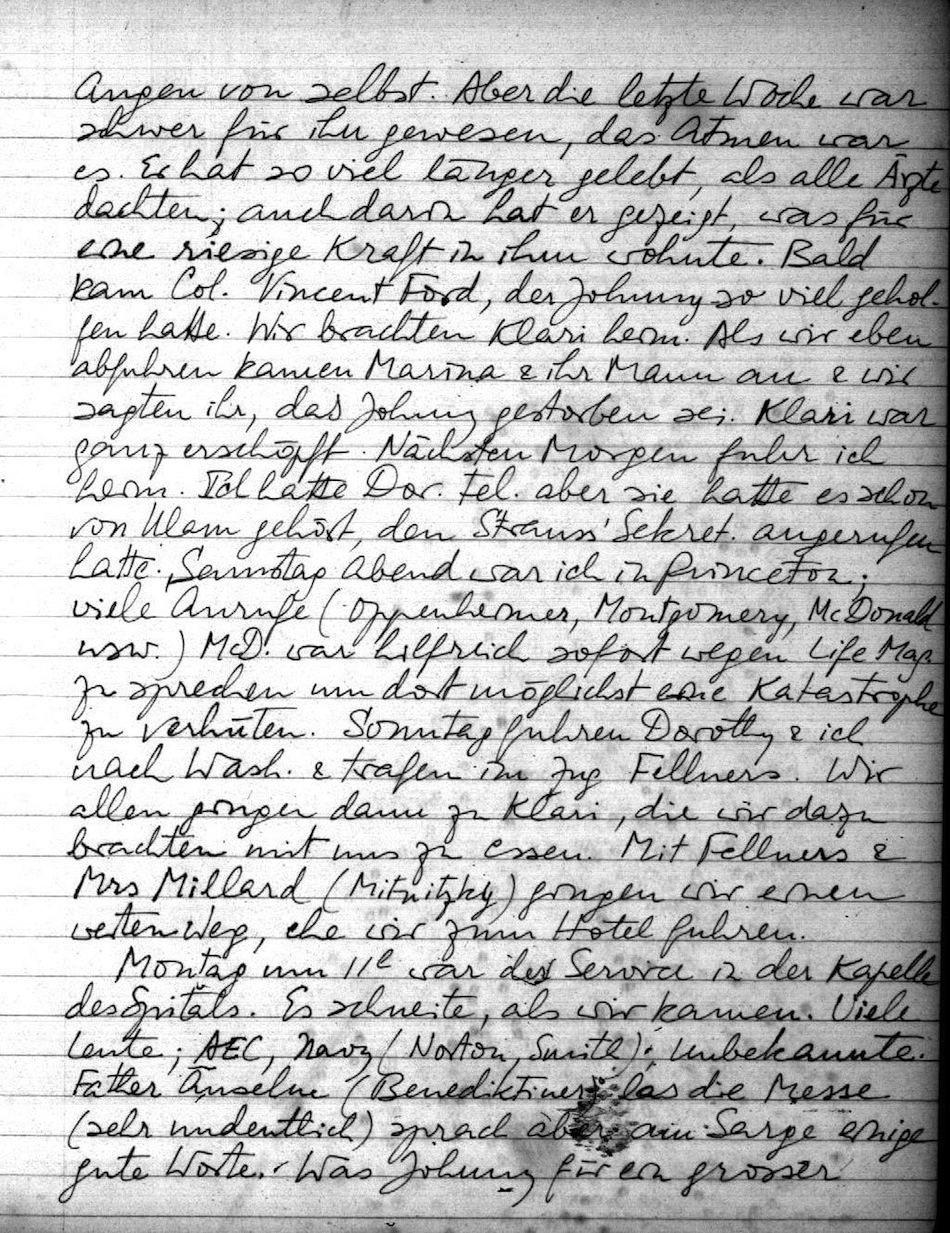 Augen von selbst. Aber die letzte Woche war
schwer für ihn gewesen, das Atmen war
es. Er hat so viel länger gelebt, als alle Ärzte
dachten; auch darin hat er gezeigt, was für
eine riesige Kraft in ihm wohnte. Bald
kam Col. Vincent Ford, der Johnny so viel gehol-
fen hatte. Wir brachten Klari heim. Als wir eben
abfuhren kamen Marina & ihr Mann an & wir
sagten ihr, das Johnny gestorben sei. Klari war
ganz erschöpft. Nächsten Morgen fuhr ich
heim. Ich hatte Dor. tel. aber sie hatte es schon
von Ulam gehört, den Strauss' Sekret. angerufen
hatte. Samstag Abend war ich in Princeton;
viele Anrufe (Oppenheimer, Montgomery, McDonald
usw.) McD. war hilfreich sofort wegen Life Mag.
zu sprechen um dort möglichst eine Katastrophe
zu verhüten. Sonntag fuhren Dorothy & ich
nach Wash. & trafen im Zug Fellners. Wir
allen gingen dann zu Klari, die wir dazu
brachten mit uns zu essen. Mit Fellners &
Mrs Millard (Mitnitzky) gingen wir einen
weiten Weg, ehe wir zum Hotel fuhren.
Montag um 11e war der Service in der Kapelle
des Spitals. Es schneite, als wir kamen. Viele
Leute; AEC, Navy (Norton, Smith); Unbekannte.
Father Anselm (Benediktiner) las die Messe
(sehr undeutlich) sprach aber am Sarge einige
gute Worte. Was Johnny für ein grosser